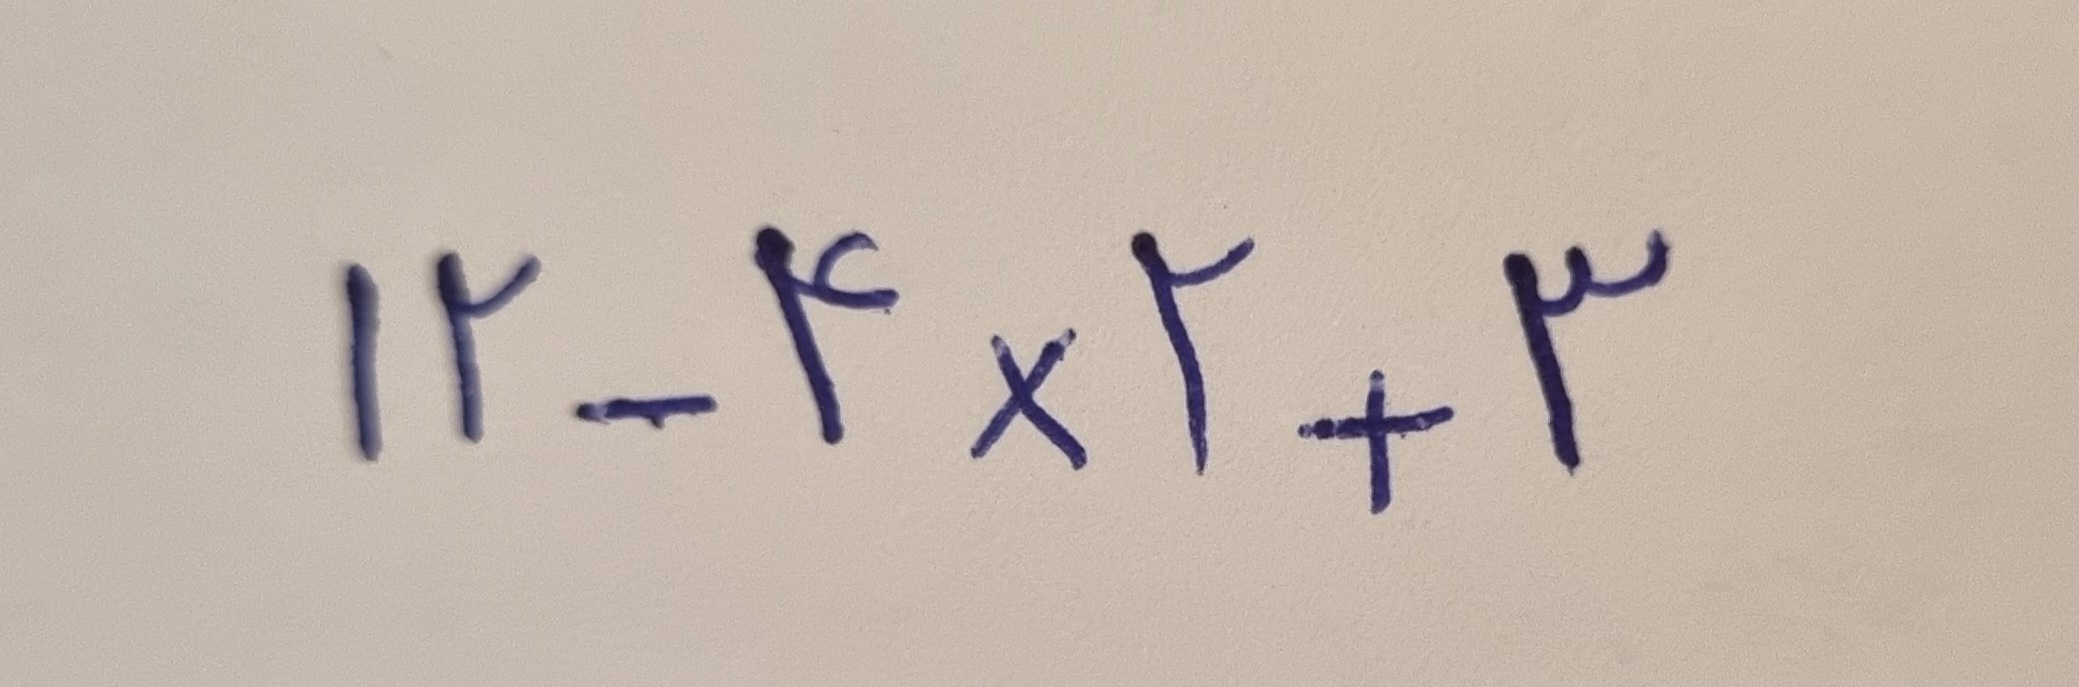 ۱۲ - ۴ × ۲ + ۳